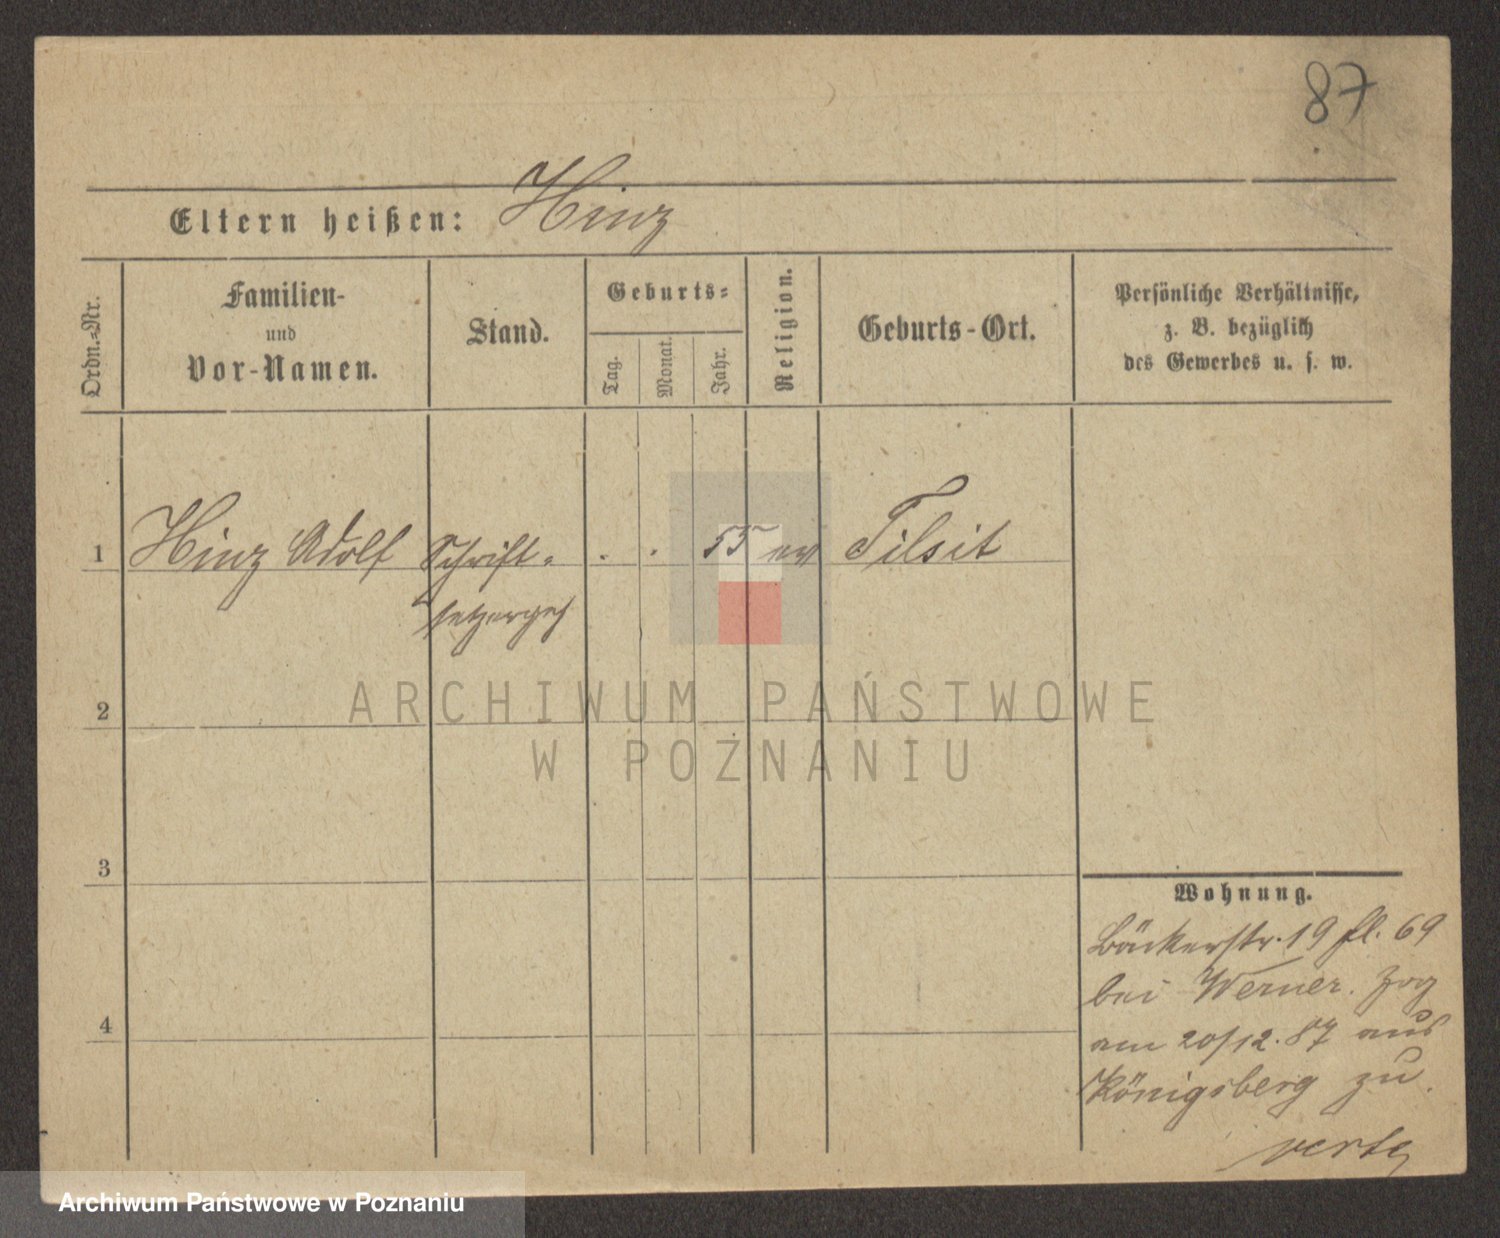 87
Eltern heißen: Hinz
Ordn.-Nr.
Familien-
und
Vor-Namen.
Stand.
Geburts-
Tag.
Monat.
Jahr.
Religion.
Geburts-Ort.
Persönliche Verhältnisse,
z. B. bezüglich
des Gewerbes u. s. w.
1 Hinz Adolf Schrift- . . 55 ev Tilsit
setzergeh
2
ARCHIWUM PAŃSTWOWE
W POZNANIU
3
Wohnung.
Bäckerstr. 19 fl. 69
bei Werner. zog
4
am 20/12. 87 aus
Königsberg zu.
verte
Archiwum Państwowe w Poznaniu